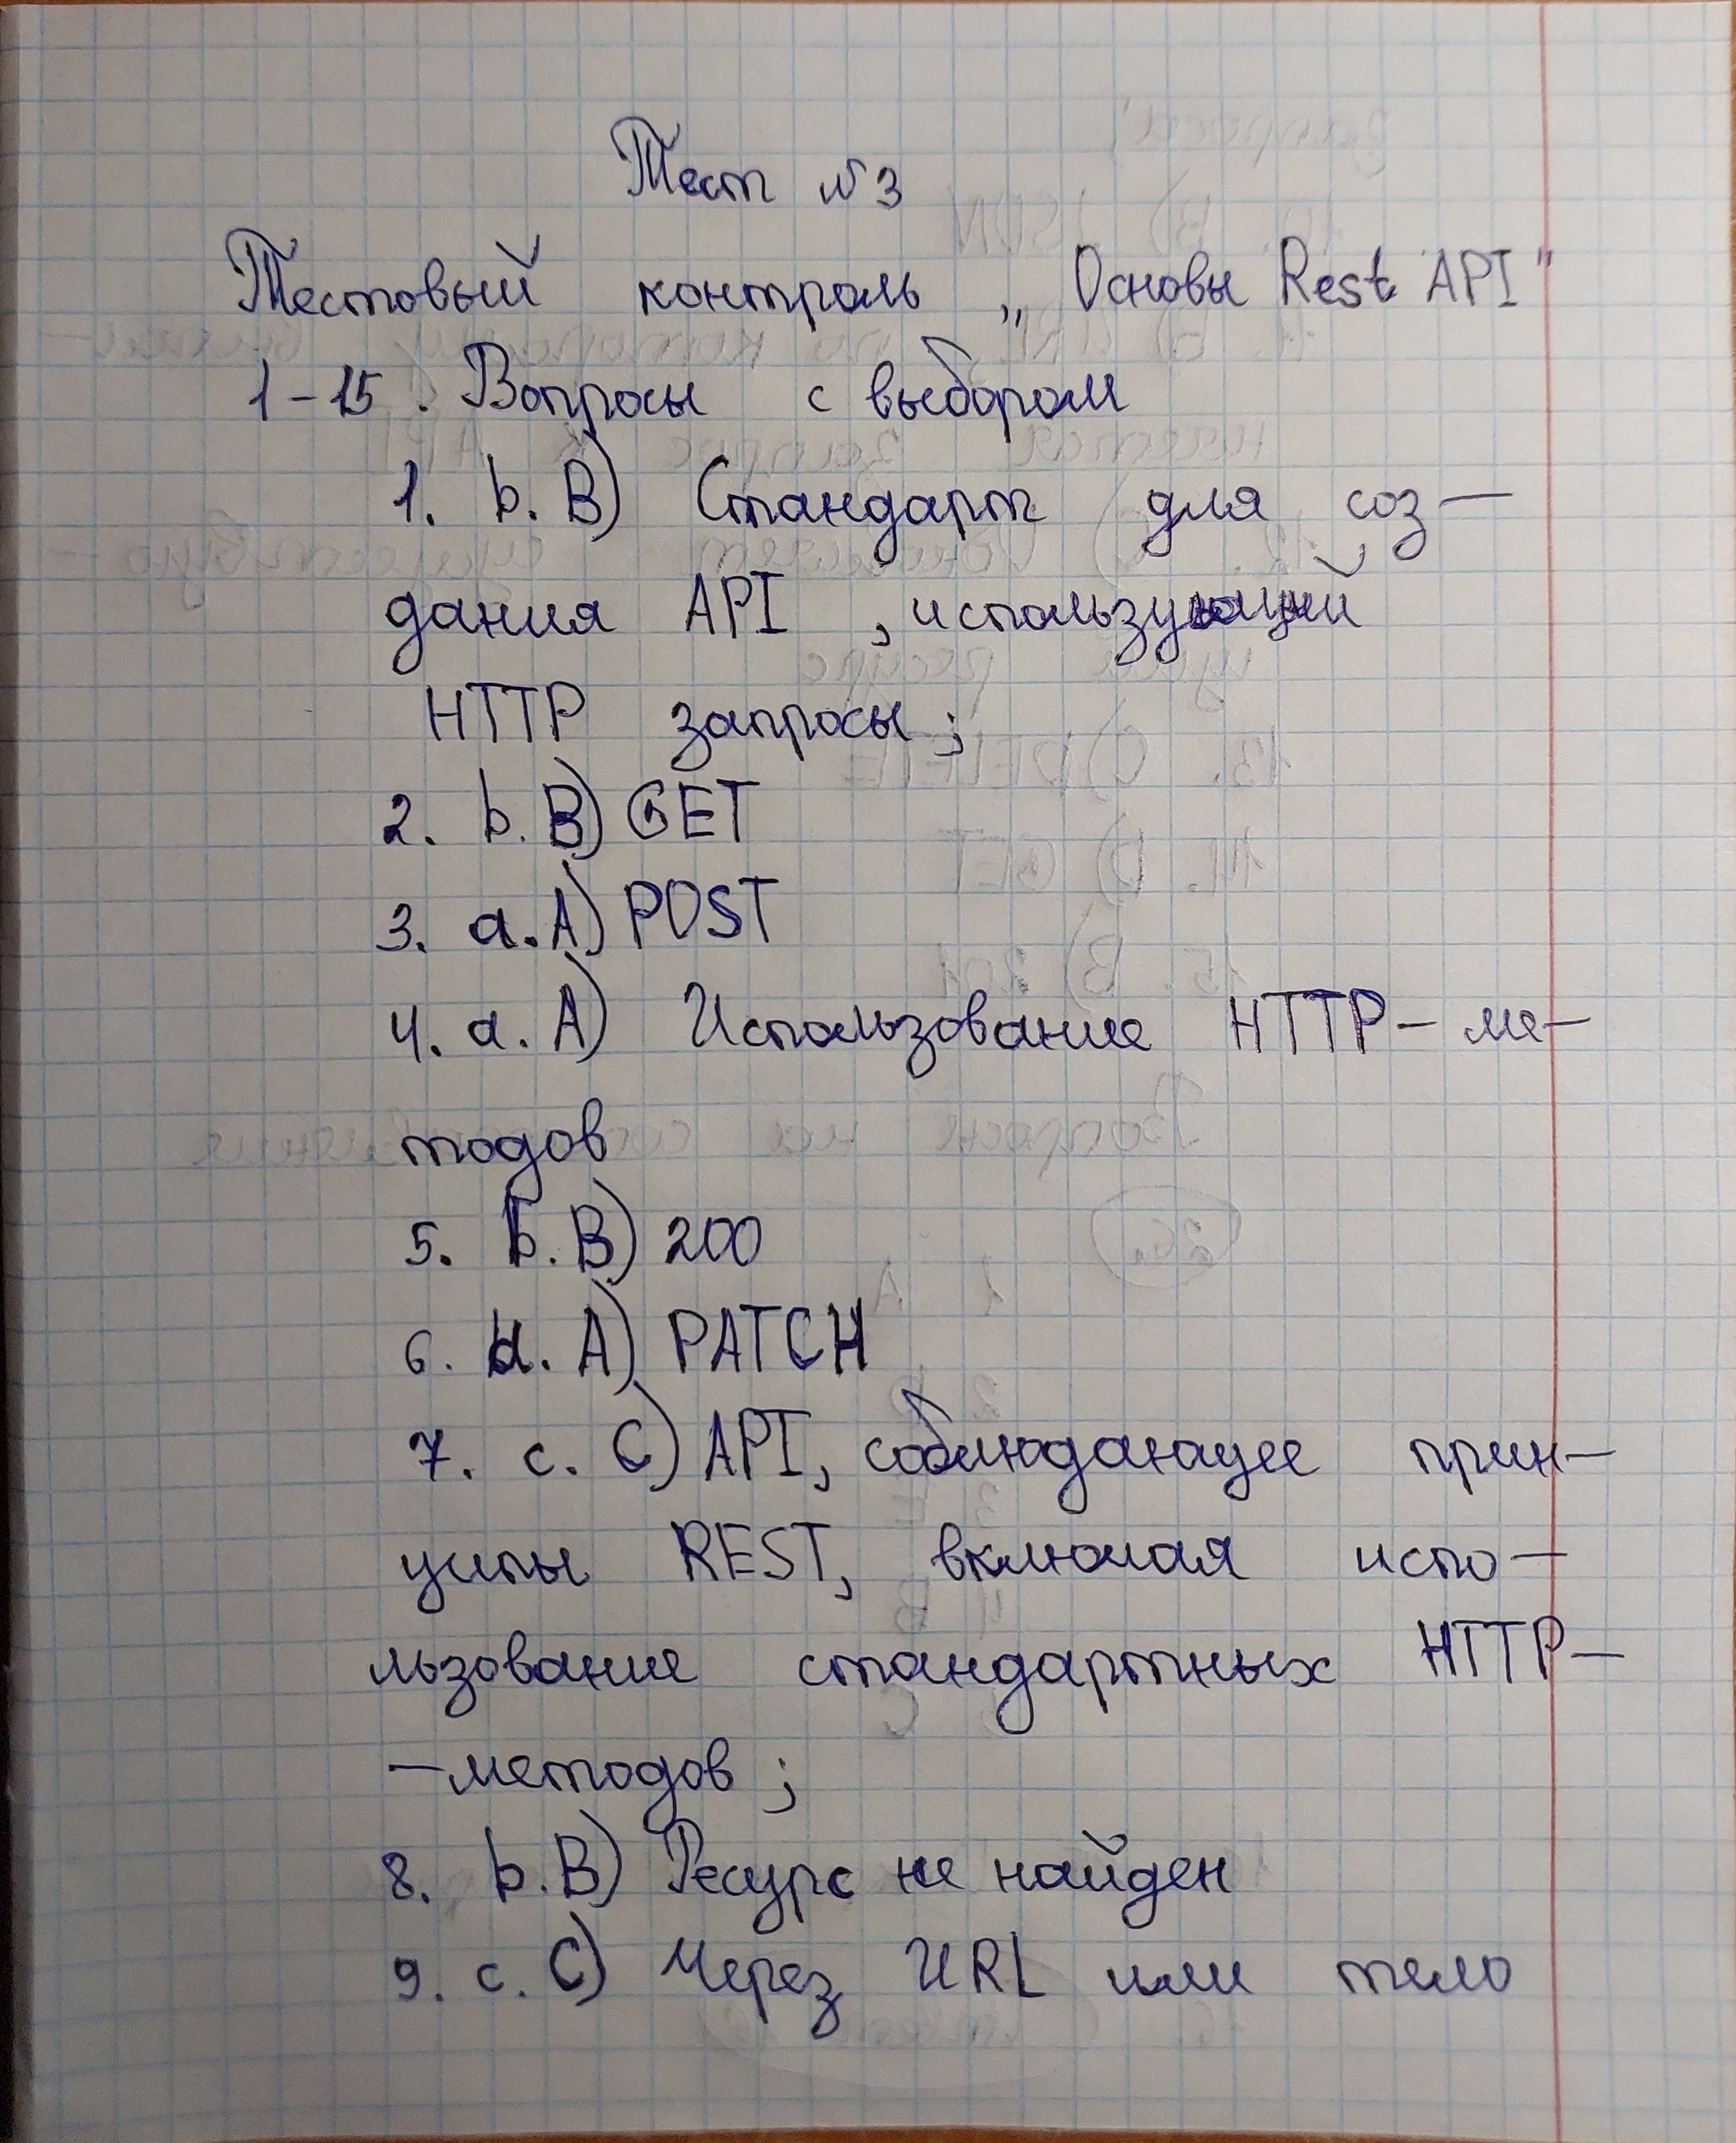 Тест №3
Тестовый контроль „Основы Rest API"
1-15. Вопросы с выбором
1. b. B) Стандарт для соз-
дания API, использующий
HTTP запросы;
2. b. B) GET
3. a. A) POST
4. a. A) Использование HTTP-ме-
тодов
5. b. B) 200
6. a. A) PATCH
7. c. C) API, соблюдающее прин-
ципы REST, включая испо-
льзование стандартных HTTP-
-методов;
8. b. B) Ресурс не найден
9. c. C) Через URL или тело